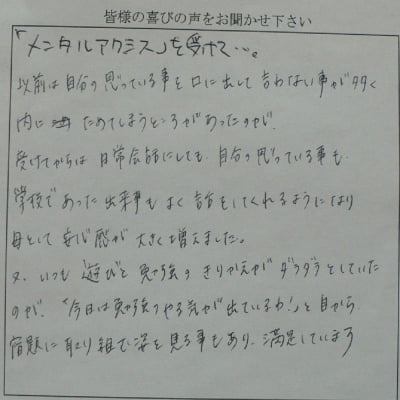 皆様の喜びの声をお聞かせ下さい
「メンタルアクシス」を受けて…。
以前は自分の思っている事を口に出して言わない事が多く
内に ためてしまうところがあったのが、
受けてからは 日常会話にしても、自分の思っている事も、
学校であった出来事もよく話をしてくれるようになり
母として安心感が大きく増えました。
又、いつも遊びと勉強のきりかえがダラダラとしていた
のが、「今日は勉強やる気が出ているわ!」と自から
宿題に取り組む姿を見る事もあり、満足しています